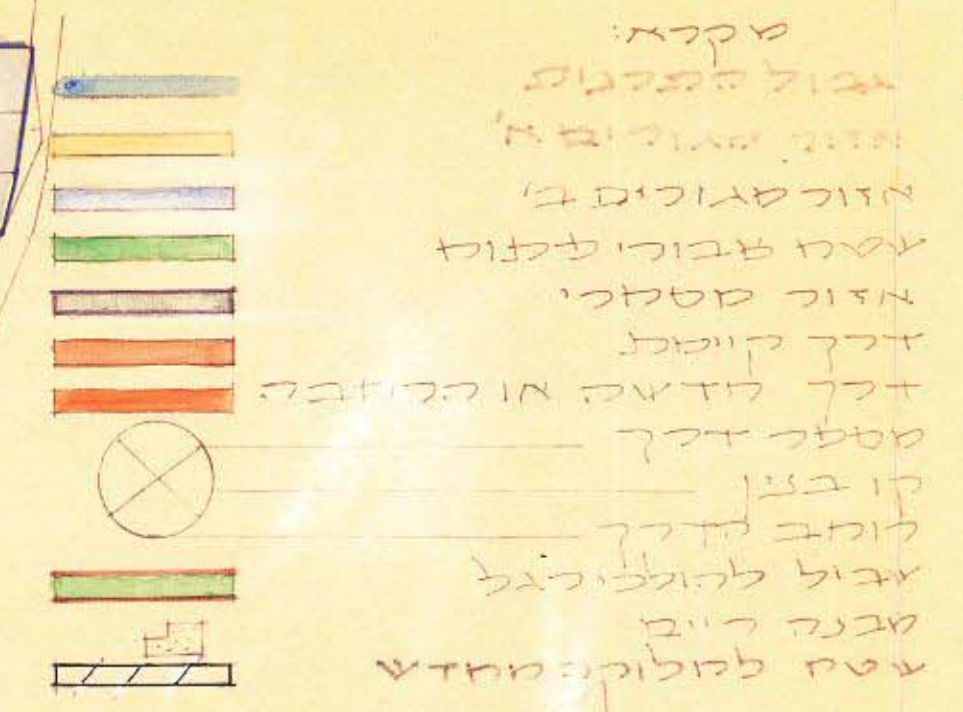 מקרא:
גבול התכנית
אזור מגורים א'
אזור מגורים ב'
שטח צבורי פתוח
אזור מסחרי
דרך קיימת
דרך חדשה או הרחבה
מספר דרך
קו בנין
רוחב הדרך
שביל להולכי רגל
מבנה קיים
שטח לחלוקה מחדש